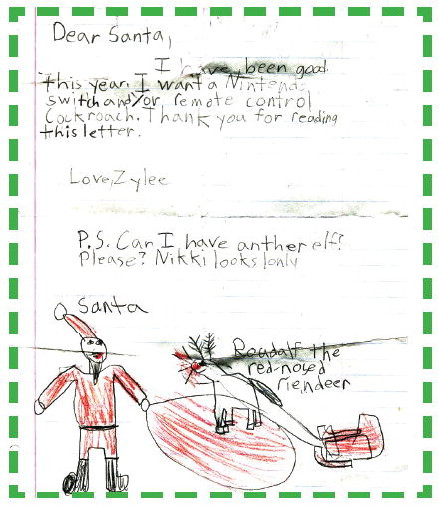 Dear Santa,
I have been good
This year. I want a Nintendo
switch and/or remote control
Cockroach. Thank you for reading
this letter.
Love, Zylee
P.S. Can I have anther elf?
Please? Nikki looks lonly
Santa
Roadalf the
red-noyed
riendeer